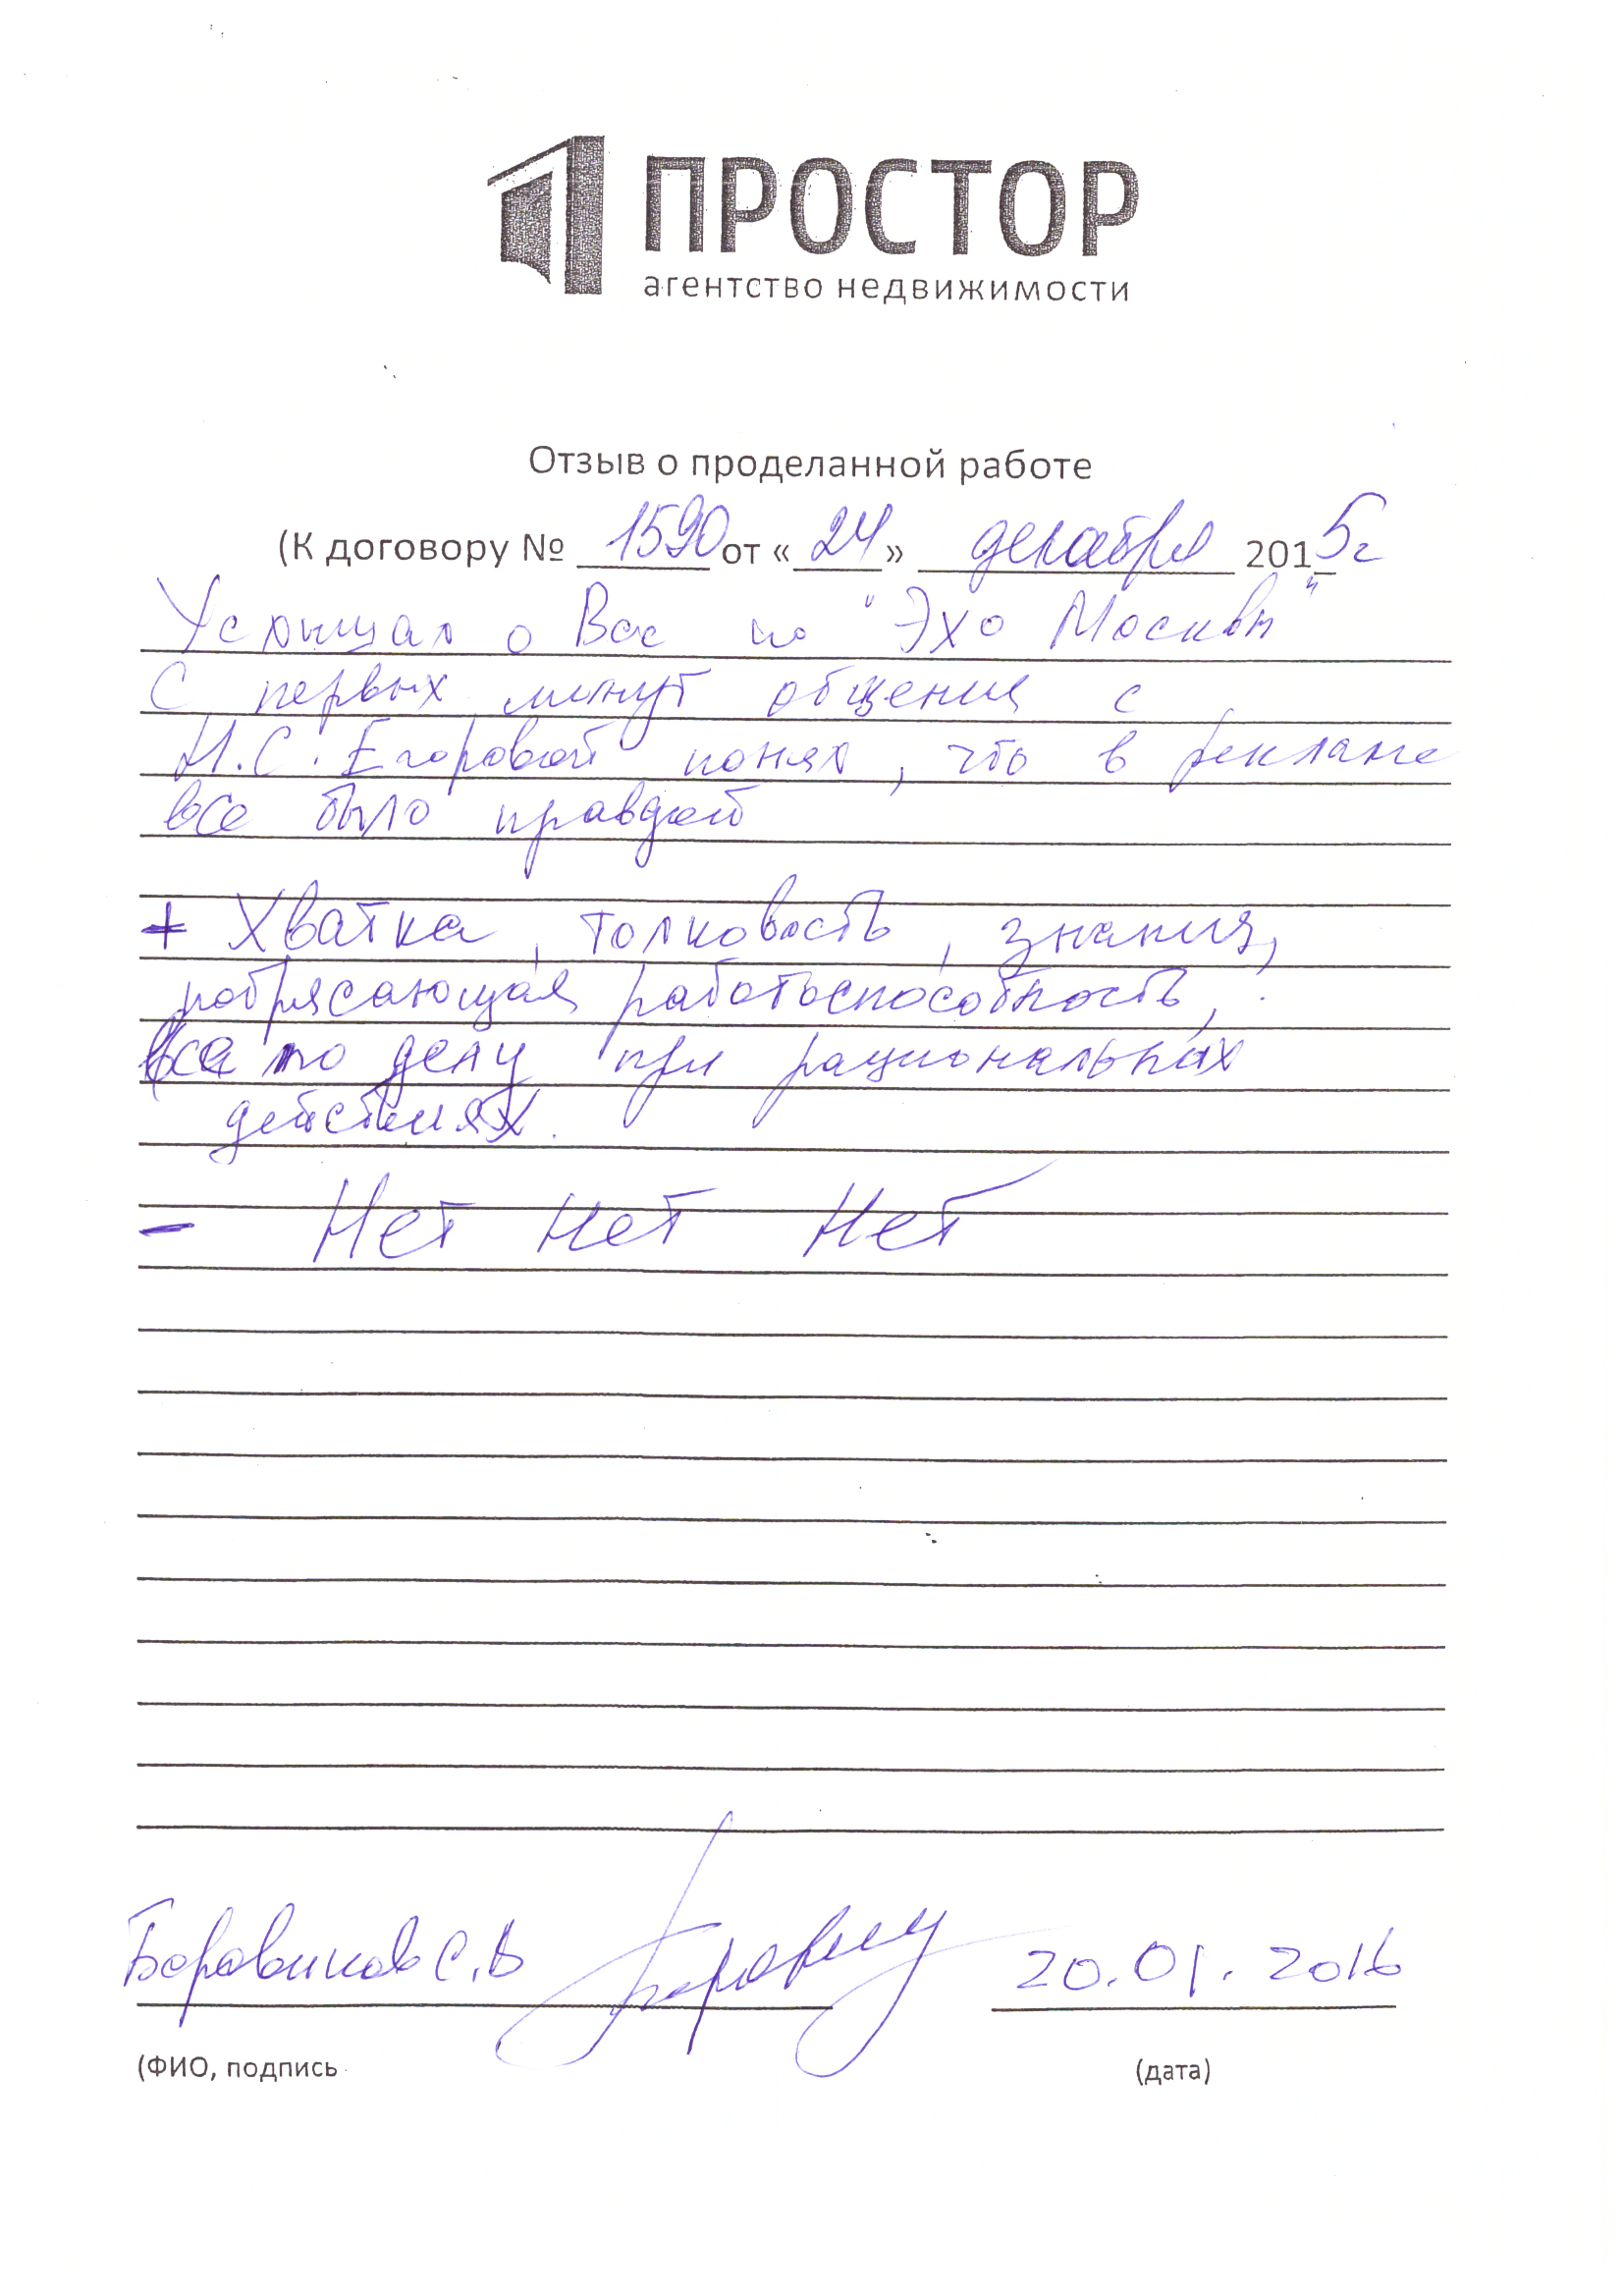 ПРОСТОР
агентство недвижимости
Отзыв о проделанной работе
(К договору № 1590 от «24» декабря 2015г
Услышал о Вас по "Эхо Москвы"
С первых минут общения с
Н.С. Егоровой понял, что в рекламе
все было правдой
+ Хватка, толковость, знания,
потрясающая работоспособность,
Все по делу при рациональных
действиях.
- Нет Нет Нет
Боровиков С.В
20.01.2016
(ФИО, подпись
(дата)